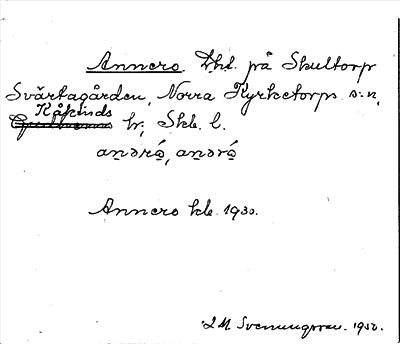 Annero. Lht. på Skultorp
Svärtagården, Norra Kyrketorps s:n,
Kåkinds
hr, Skb. l.
Annero kbl. 1930.
L M Svenungsson. 1950.